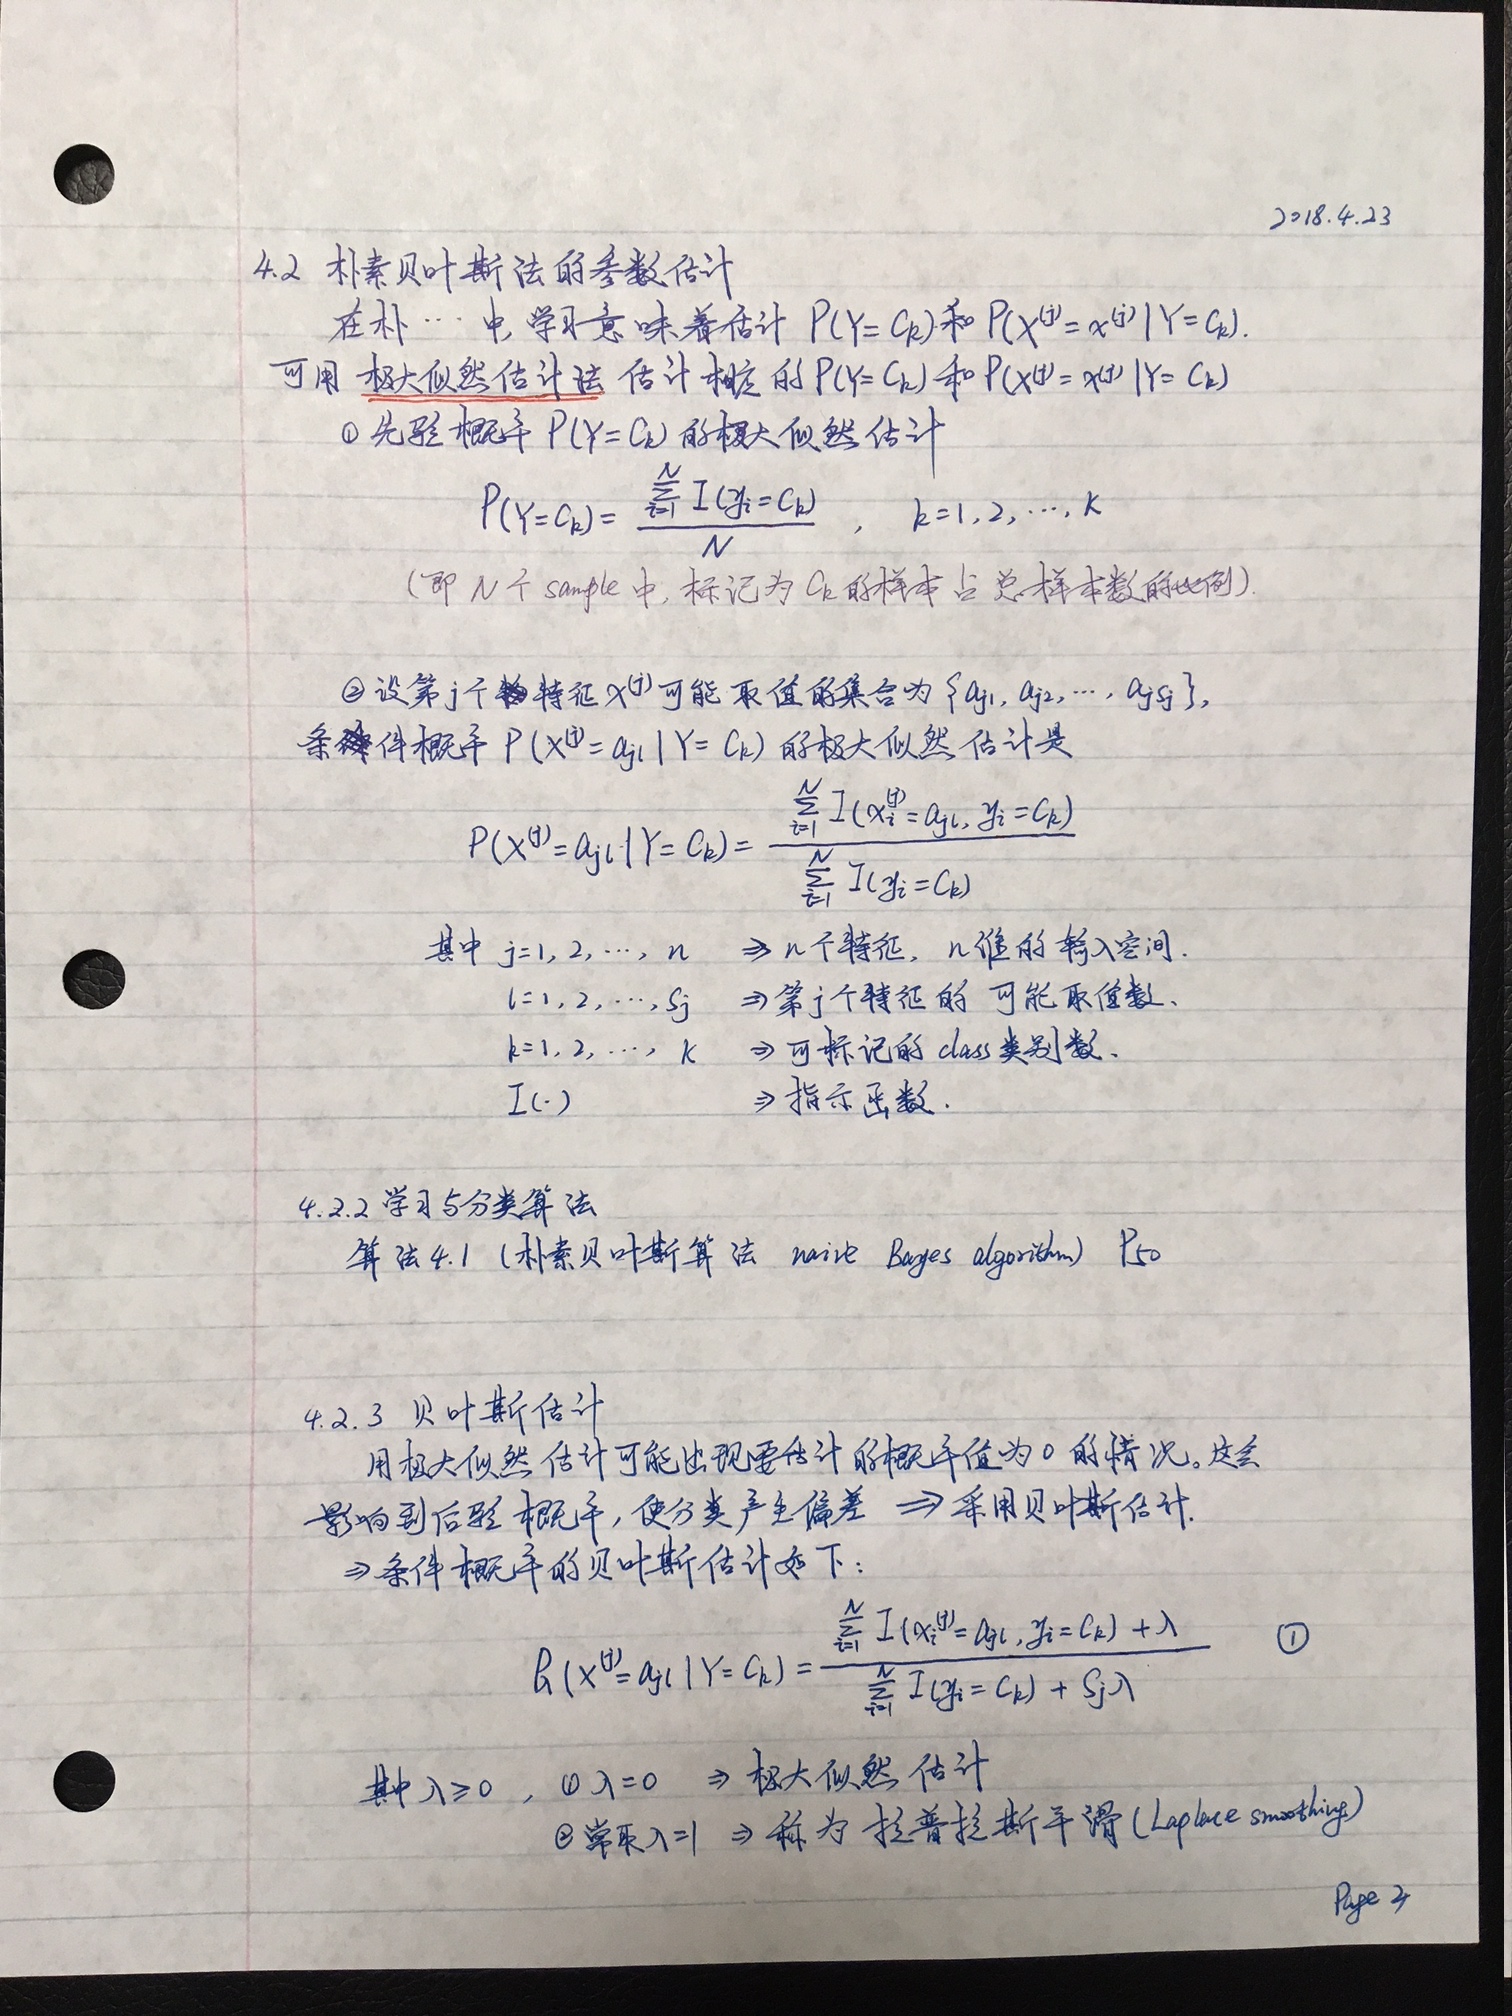 2018.4.23
4.2 朴素贝叶斯法的参数估计
在朴…中,学习意味着估计 P(Y=Ck)和 P(X^(j)=x^(j)|Y=Ck).
可用 极大似然估计法 估计相应的P(Y=Ck)和P(X^(j)=x^(j)|Y=Ck)
① 先验概率 P(Y=Ck)的极大似然估计
P(Y=Ck)= \frac{\sum_{i=1}^{N} I(yi=Ck)}{N} , k=1,2,…,K
(即 N个 sample中,标记为Ck的样本占总样本数的比例).
② 设第j个特征x^(j)可能取值的集合为{aj1, aj2, …, ajSj},
条件概率 P(X^(j)=ajl|Y=Ck)的极大似然估计是
P(X^(j)=ajl|Y=Ck)= \frac{\sum_{i=1}^{N} I(xi^(j)=ajl, yi=Ck)}{\sum_{i=1}^{N} I(yi=Ck)}
其中 j=1,2,…,n ⇒ n个特征, n维的输入空间.
l=1,2,…,Sj ⇒ 第j个特征的可能取值数.
k=1,2,…,K ⇒ 可标记的class类别数.
I(·) ⇒ 指示函数.
4.2.2 学习与分类算法
算法4.1 (朴素贝叶斯算法 naive Bayes algorithm) P50
4.2.3 贝叶斯估计
用极大似然估计可能出现要估计的概率值为0的情况。这会
影响到后验概率,使分类产生偏差 ⇒ 采用贝叶斯估计.
⇒ 条件概率的贝叶斯估计如下:
Pλ(X^(j)=ajl|Y=Ck)= \frac{\sum_{i=1}^{N} I(xi^(j)=ajl, yi=Ck)+λ}{\sum_{i=1}^{N} I(yi=Ck)+Sjλ} ①
其中 λ≥0 , ① λ=0 ⇒ 极大似然估计
② 常取λ=1 ⇒ 称为 拉普拉斯平滑(Laplace smoothing)
Page 3